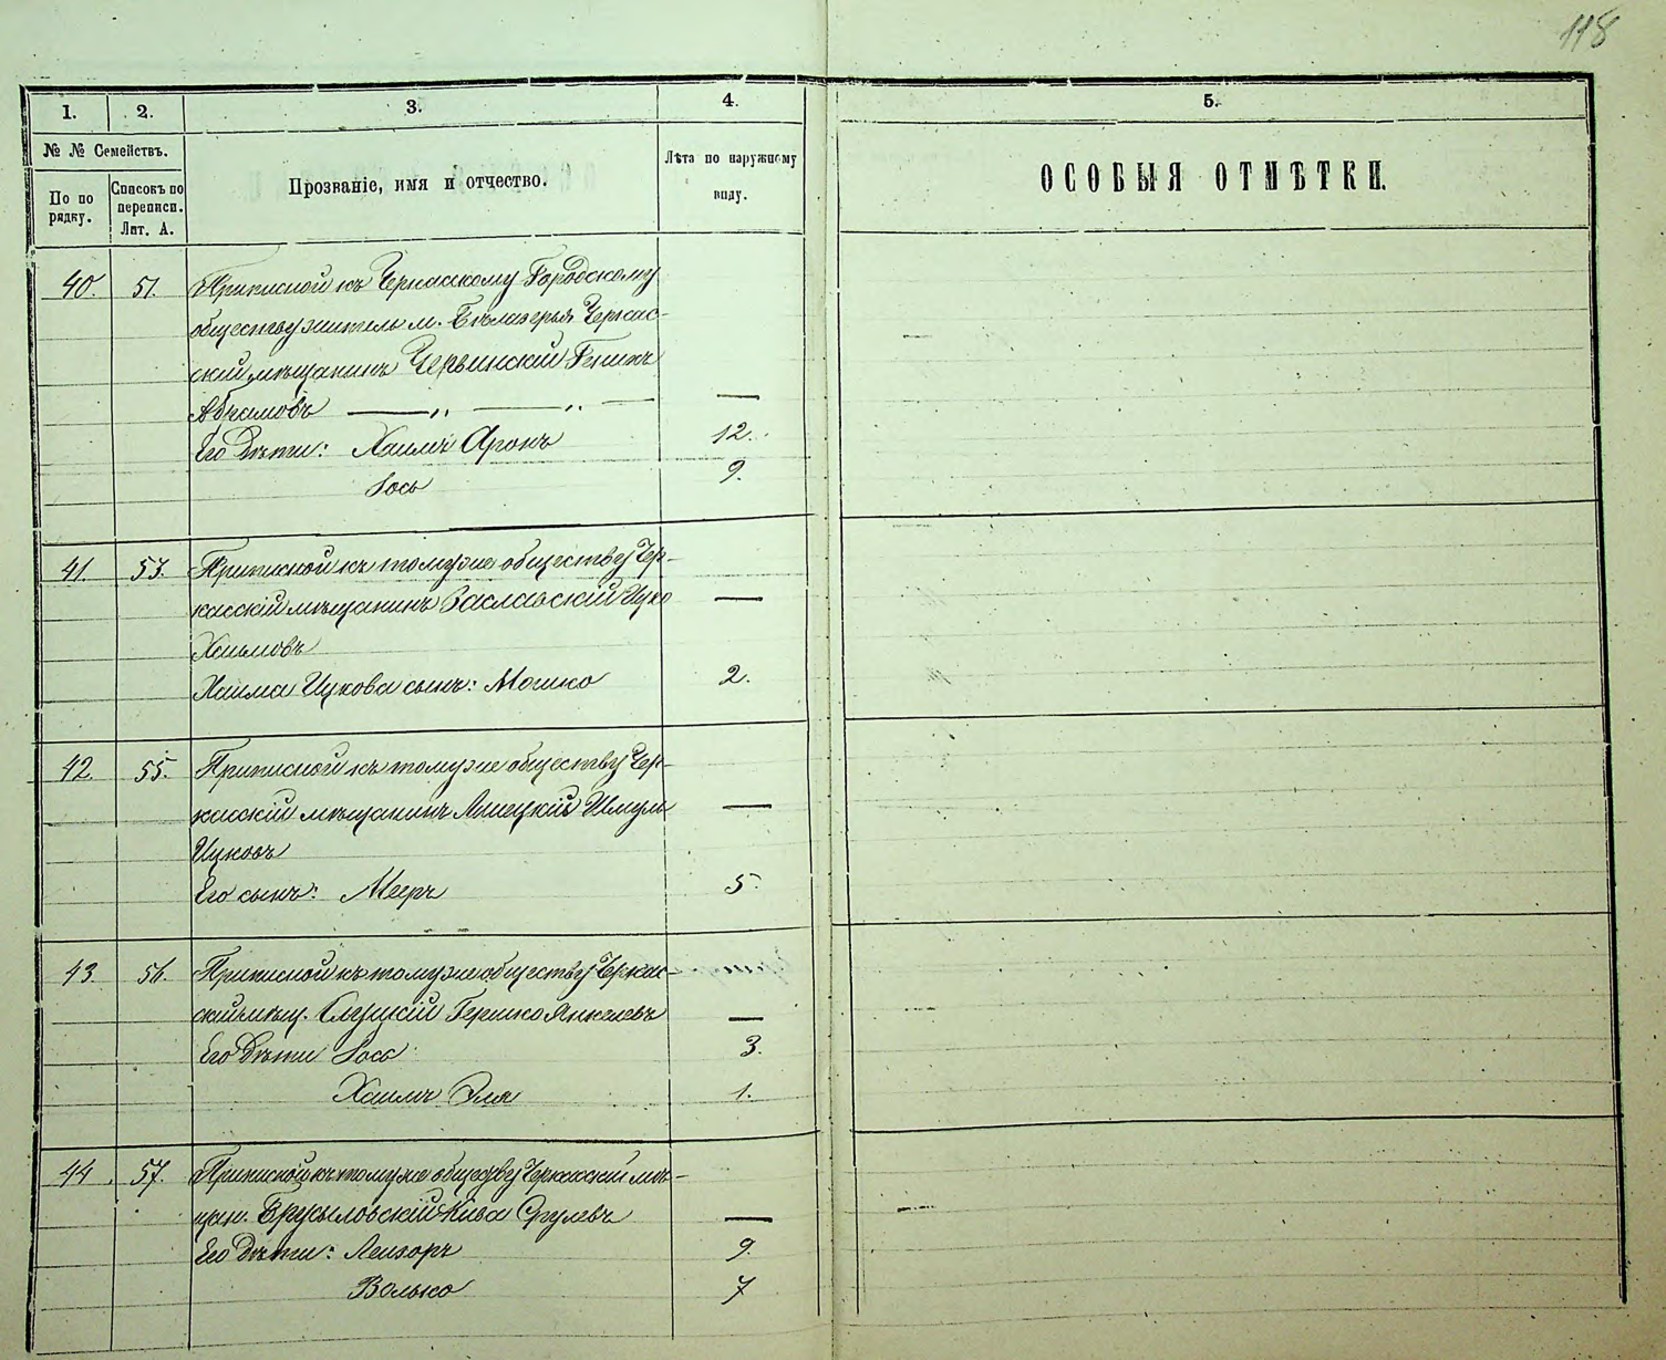 118
1.
2.
3.
4.
5.
№ № Семействъ.
По по рядку.
Списокъ по переписи. Лит. А.
Прозваніе, имя и отчество.
Лѣта по наружному виду.
ОСОБЫЯ ОТМѢТКИ.
40. 51. Приписной къ Черкасскому Городскому
обществу житель м. Бѣлазерья Черкас-
скій мѣщанинъ Червинскій
Абрамовъ —
Его дѣти: Хаимъ Аронъ 12.
Іось 9.
41. 53. Приписной къ тому же обществу Чер-
касскій мѣщанинъ Заславскій Ицко —
Хаимовъ
Хаима Ицкова сынъ: Мошко 2.
42. 55. Приписной къ тому же обществу Чер-
касскій мѣщанинъ Шмуль —
Ицковъ
Его сынъ: Мееръ 5.
43. 56. Приписной къ тому же обществу Черкас-
скій мѣщ. Слуцкій Гершко Янкелевъ —
Его дѣти Іось 3.
Хаимъ Эля 1.
44. 57. Приписной къ тому же обществу Черкасскій мѣ-
щан. Брусиловскій Кива Срулевъ —
Его дѣти: Лейзоръ 9.
Волько 7